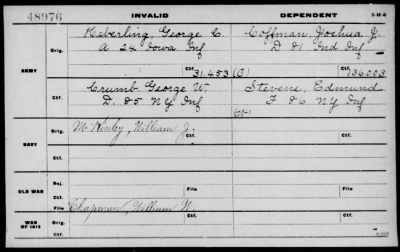 48976
INVALID
DEPENDENT
3-31-6
Heberling, George C.
Coffman, Joshua J.
Orig.
A 24 Iowa Inf
D 81 Ind Inf
ARMY
31.453 (C)
Ctf.
136003
Crumb, George W.
Stevens, Edmund
D. 85 NY Inf
F 86 NY Inf
Ctf.
(W)
Mc Kinley, William J.
Orig.
Ctf.
NAVY
Ctf.
OLD WAR
Rej.
Ctf.
File
File
Chapman, William N.
WAR OF 1812
Orig.
Ctf.
Ctf.